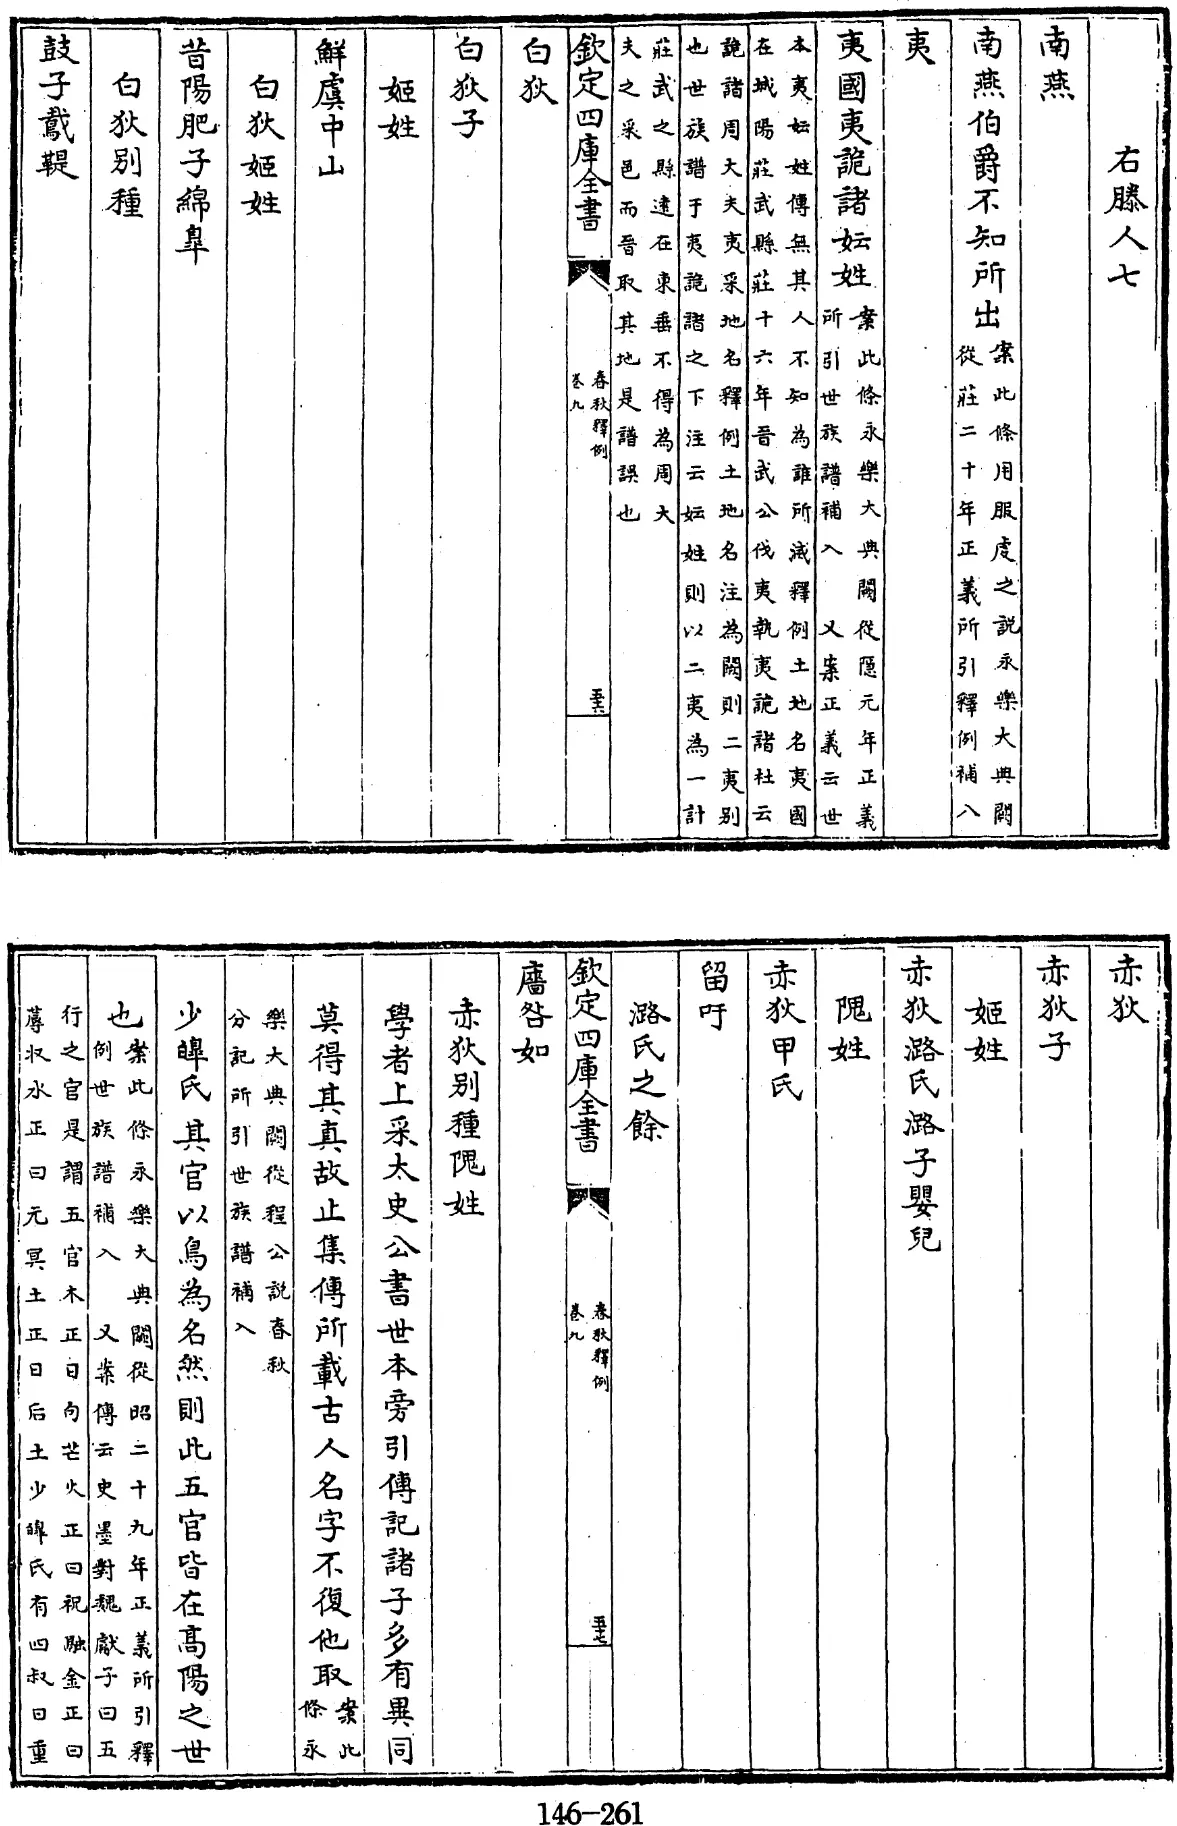 右滕人七
南燕
南燕伯爵不知所出案此條用服虔之説永樂大典闕
從莊二十年正義所引釋例補入
夷
夷國夷詭諸妘姓案此條永樂大典闕從隱元年正義
所引世族譜補入 又案正義云世
本夷妘姓傳無其人不知為誰所滅釋例土地名夷國
在城陽莊武縣莊十六年晉武公伐夷執夷詭諸杜云
詭諸周大夫夷采地名釋例土地名注為闕則二夷别
也世族譜于夷詭諸之下注云妘姓則以二夷為一計
莊武之縣遠在東垂不得為周大
夫之采邑而晉取其地是譜誤也
欽定四庫全書
春秋釋例
卷九
五十六
白狄
白狄子
姬姓
鮮虞中山
白狄姬姓
昔陽肥子綿臯
白狄别種
鼓子鳶鞮
赤狄
赤狄子
姬姓
赤狄潞氏潞子嬰兒
隗姓
赤狄甲氏
留吁
潞氏之餘
欽定四庫全書
春秋釋例
卷九
五十七
廧咎如
赤狄别種隗姓
學者上采太史公書世本旁引傳記諸子多有異同
莫得其真故止集傳所載古人名字不復他取案此
條永
樂大典闕從程公説春秋
分記所引世族譜補入
少皥氏其官以鳥為名然則此五官皆在髙陽之世
也案此條永樂大典闕從昭二十九年正義所引釋
例世族譜補入 又案傳云史墨對魏獻子曰五
行之官是謂五官木正曰句芒火正曰祝融金正曰
蓐收水正曰元冥土正曰后土少皥氏有四叔曰重
146-261